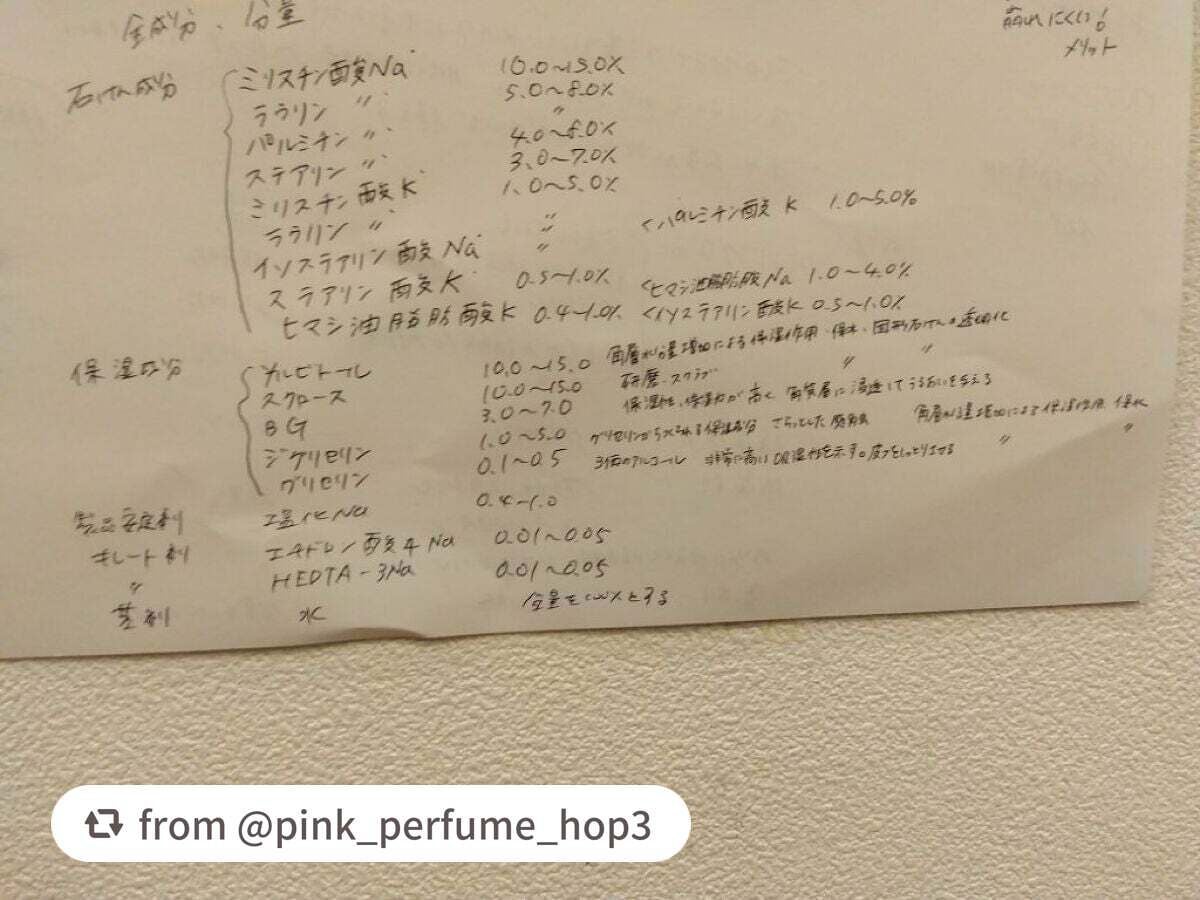 全成分、分量
崩れにくい!
メリット
石けん成分
ミリスチン酸Na 10.0~15.0%
ラウリン 〃 5.0~8.0%
パルミチン 〃 〃
ステアリン 〃 4.0~8.0%
ミリスチン酸K 3.0~7.0%
ラウリン 〃 1.0~5.0%
イソステアリン酸Na 〃 <パルミチン酸K 1.0~5.0%
ステアリン酸K 0.5~1.0% <ヒマシ油脂肪酸Na 1.0~4.0%
ヒマシ油脂肪酸K 0.4~1.0% <イソステアリン酸K 0.5~1.0%
保湿成分
ソルビトール 10.0~15.0 角層水分量増加による保湿作用・保水・固形石けんの透明化
スクロース 10.0~15.0 研磨・スクラブ 〃 〃
BG 3.0~7.0 保湿性、保水力が高く 角質層に浸透してうるおいを与える
ジグリセリン 1.0~5.0 グリセリンから 保湿成分 さらっとした 角層水分量増加による保湿作用 保水
グリセリン 0.1~0.5 3価のアルコール 非常に高い 示す。皮フをしっとりさせる 〃 〃
製品安定剤 塩化Na 0.4~1.0
キレート剤 エチドロン酸4Na 0.01~0.05
〃 HEDTA-3Na 0.01~0.05
基剤 水 全量を100%とする
from @pink_perfume_hop3